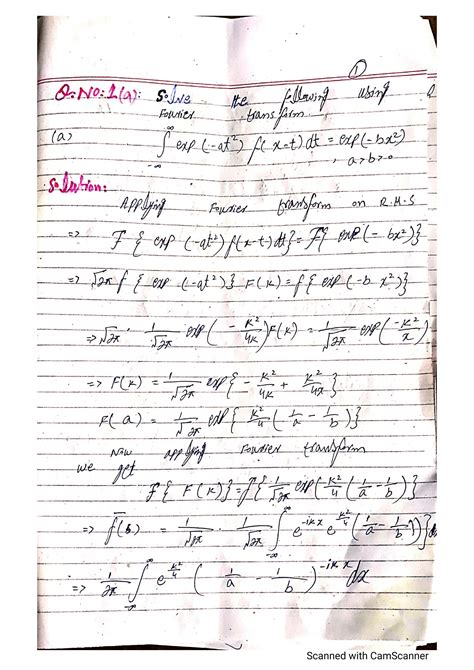 ①
Q:No:1(a): Solve the following using
Fourier transform.
(a) ∫_{-∞}^{∞} exp(-at²) f(x-t)dt = exp(-bx²)
, a>b>0
Solution:
Applying Fourier transform on R.H.S
=> F{exp(-at²)f(x-t)dt} = F{exp(-bx²)}
=> √2π f{exp(-at²)} F(k) = f{exp(-b x²)}
=> √2π · 1/√2π exp(-k²/4k)F(k) = 1/√2π exp(-k²/x)
=> F(k) = 1/√2π exp{-k²/4k + k²/4x}
F(a) = 1/√2π exp{k²/4 (1/a - 1/b)}
Now applying Fourier transform
we get
F{F(k)} = f{1/√2π exp(k²/4 (1/a - 1/b)}
=> f(s) = 1/√2π · 1/√2π ∫_{-∞}^{∞} e^{-ikx} e^{k²/4} (1/a - 1/b)}
=> 1/2π ∫_{-∞}^{∞} e^{k²/4} (1/a - 1/b)^{-ikx} dx
Scanned with CamScanner